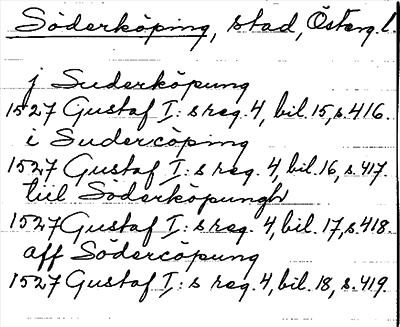 Söderköping, stad, Österg.l.
j Suderköpung
1527 Gustaf I:s reg. 4, bil. 15, s. 416.
i Sudercöping
1527 Gustaf I:s reg. 4, bil. 16, s. 417.
till Söderköpungh
1527 Gustaf I:s reg. 4, bil. 17, s. 418.
aff Södercöpung
1527 Gustaf I:s reg. 4, bil. 18, s. 419.